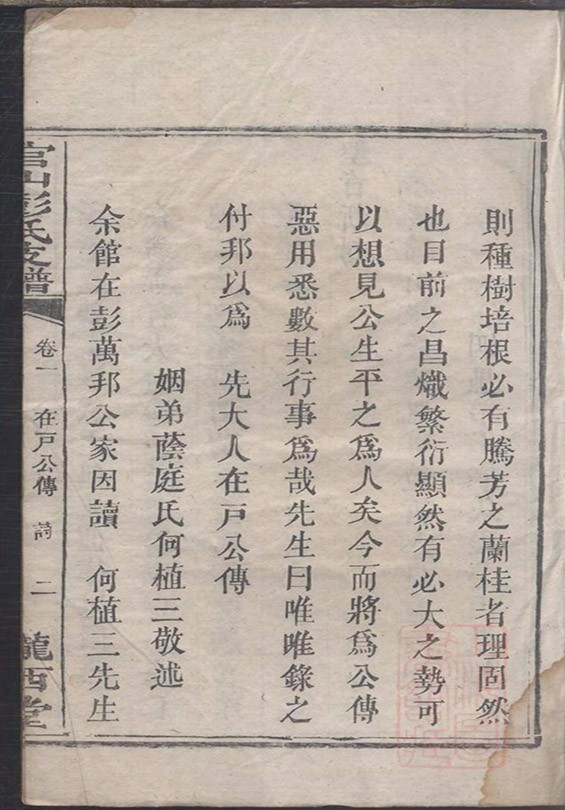 則種樹培根必有騰芳之蘭桂者理固然
也目前之昌熾繁衍顯然有必大之勢可
以想見公生平之為人矣今而將為公傳
惡用悉數其行事為哉先生曰唯唯錄之
付邦以為 先大人在戸公傳
姻弟蔭庭氏何植三敬述
余館在彭萬邦公家因讀 何植三先生
官山彭氏支譜 卷一 在戸公傳 二 隴西堂